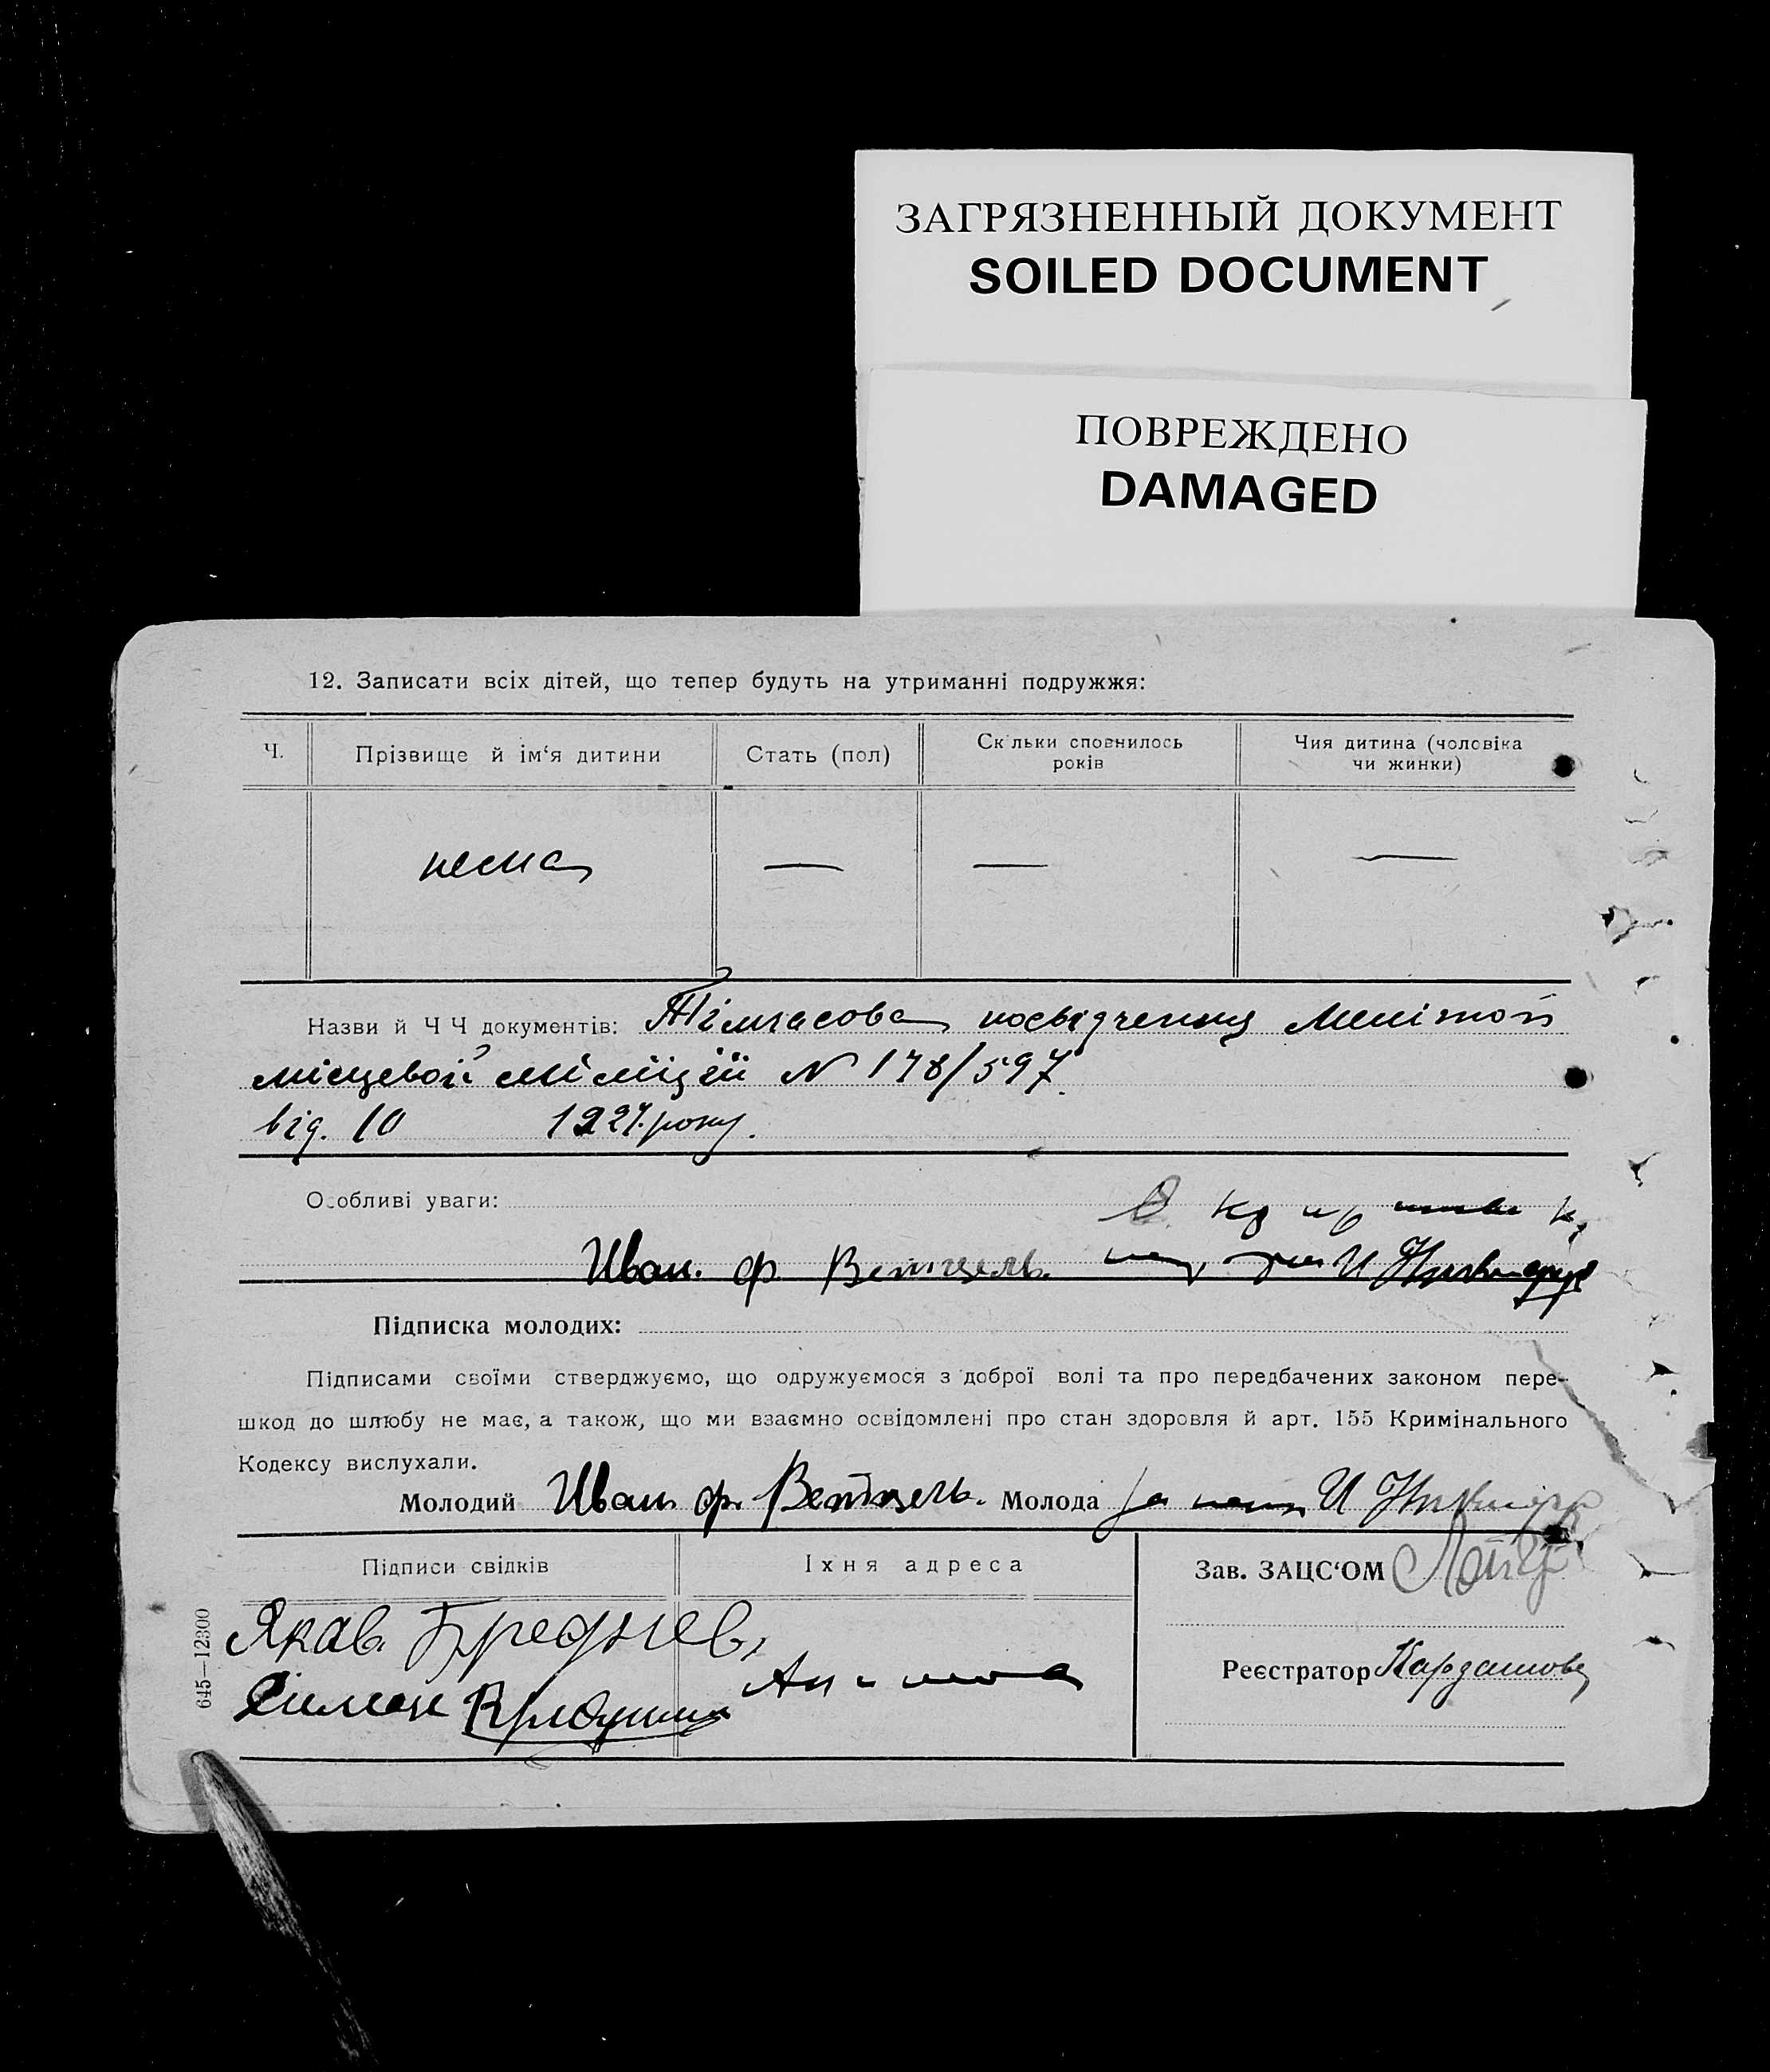 ЗАГРЯЗНЕННЫЙ ДОКУМЕНТ
SOILED DOCUMENT
ПОВРЕЖДЕНО
DAMAGED
12. Записати всіх дітей, що тепер будуть на утриманні подружжя:
Ч.
Прізвище й ім‘я дитини
Стать (пол)
Скільки сповнилось років
Чия дитина (чоловіка чи жинки)
нема — — —
Назви й Ч Ч документів: Тімчасова посвідчення
місцевоі міліціїі N 178/597.
від. 10 1927. року.
Особливі уваги:
Иван. ф. Ветцель.
Підписка молодих:
Підписами своїми стверджуємо, що одружуємося з доброї волі та про передбачених законом пере-
шкод до шлюбу не має, а також, що ми взаємно освідомлені про стан здоровля й арт. 155 Кримінального
Кодексу вислухали.
Молодий Иван ф. Ветцель. Молода
Підписи свідків
Їхня адреса
Зав. ЗАЦС‘ОМ
Якав.
Реєстратор Кардашова
645—12300